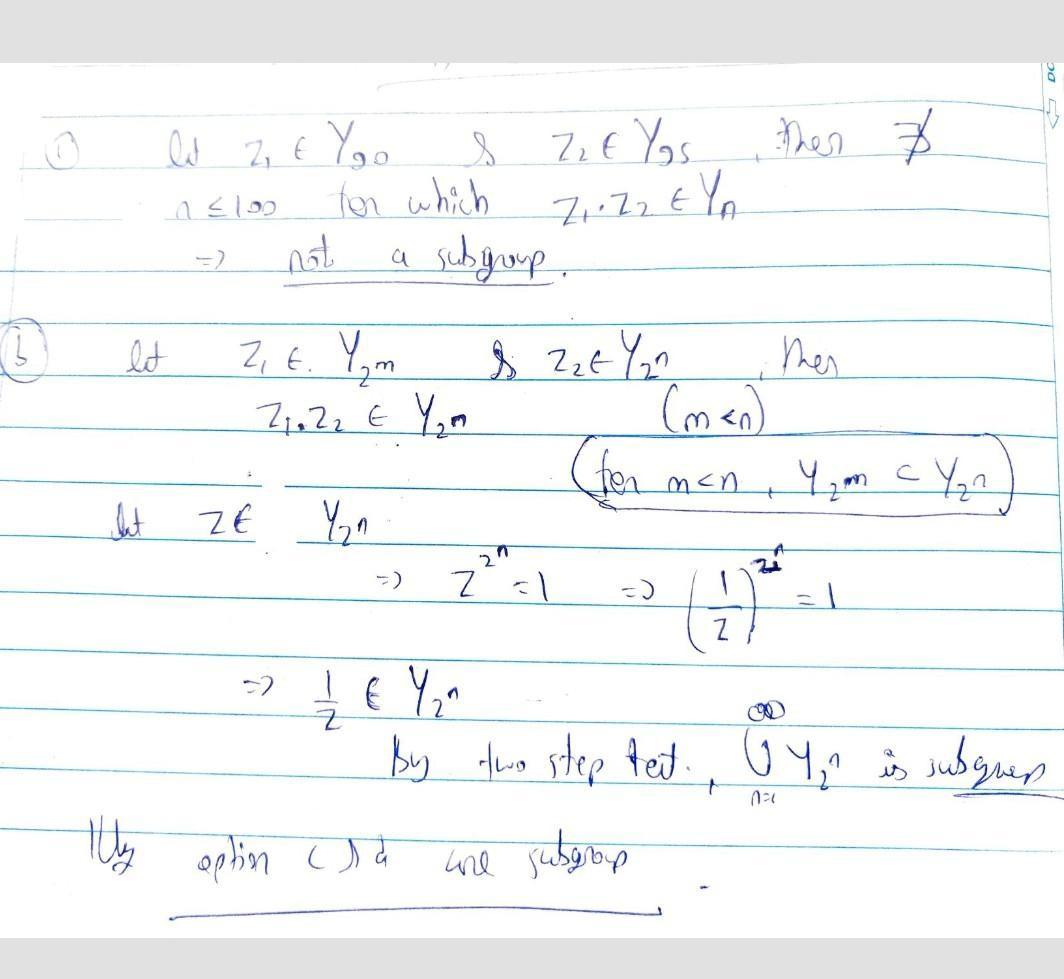 ① let Z₁ ∈ Y₉₀ & Z₂ ∈ Y₉₅, then ∄
n ≤ 100 for which Z₁.Z₂ ∈ Yₙ
=> not a subgroup.
ⓑ let Z₁ ∈. Y₂m & Z₂ ∈ Y₂n, then
Z₁.Z₂ ∈ Y₂n (m<n)
(for m<n, Y₂m ⊂ Y₂n)
let Z ∈ Y₂n
=> Z^2^n = 1 => (1/Z)^2^n = 1
=> 1/Z ∈ Y₂n
By two step test., ∞ ∪ n=1 Y₂n is subgroup
|||ly option c & d are subgroup.